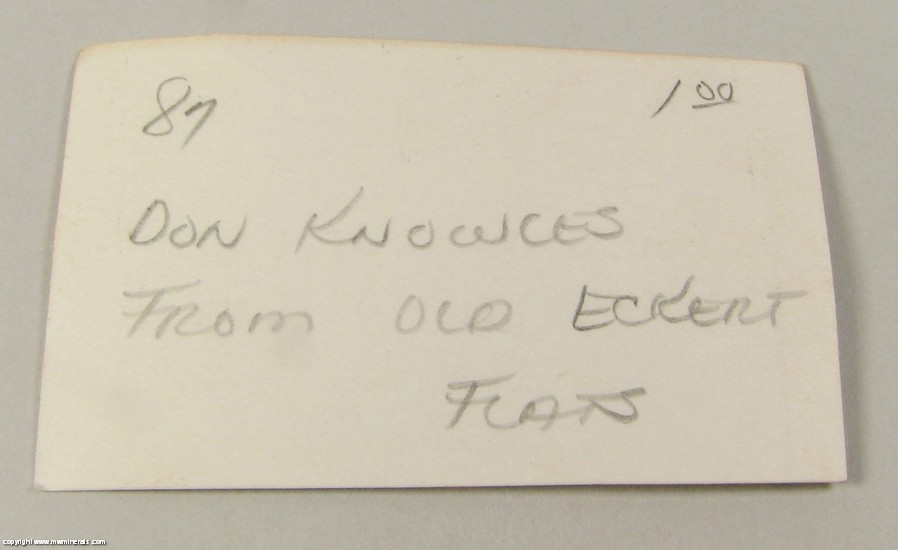 87 1 00
DON KNOWLES
FROM OLD ECKERT
FLATS
copyright www.mwminerals.com